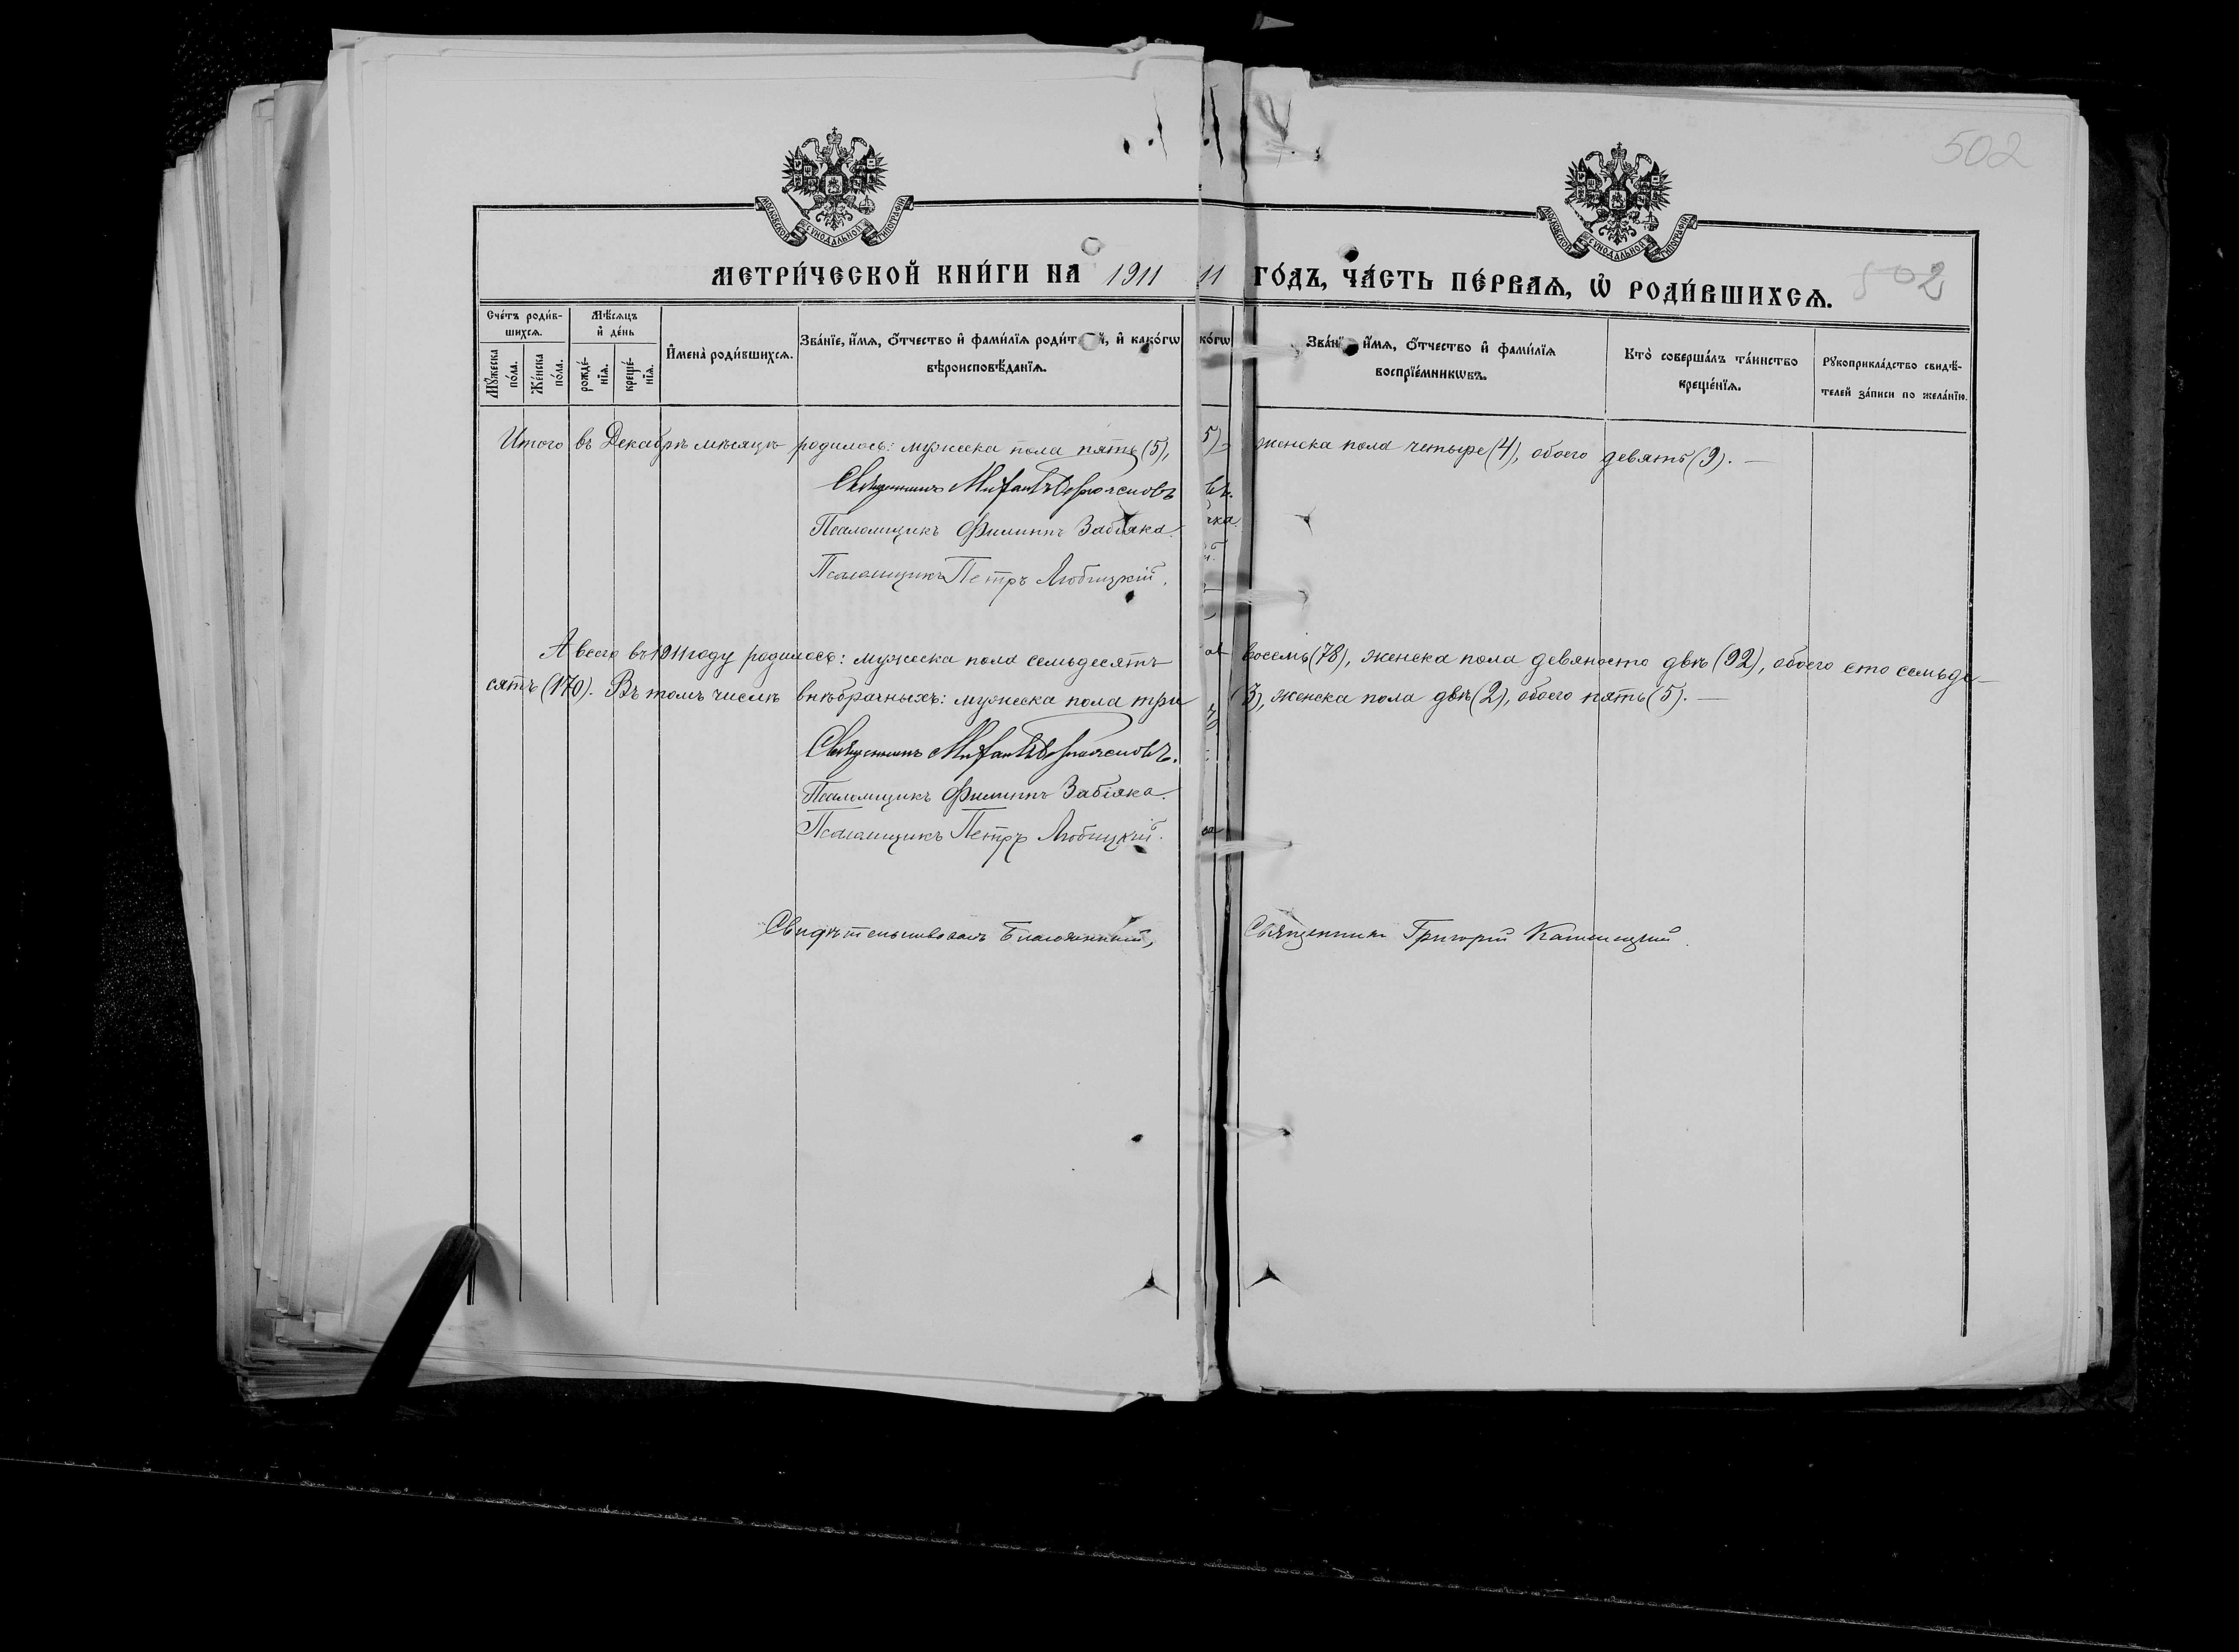 502
МОСКОВСКОЙ СУНОДАЛЬНОЙ ТИПОГРАФІИ
МОСКОВСКОЙ СУНОДАЛЬНОЙ ТИПОГРАФІИ
МЕТРИ́ЧЕСКОЙ КНИ́ГИ НА 1911 11 ГО́ДЪ, ЧА́СТЬ ПЕ́РВАѦ, Ѡ҆ РОДИ́ВШИХСѦ. 502
Сче́тъ роди́в-
шихсѧ.
Мꙋ́жеска по́ла.
Же́нска по́ла.
Мѣ́сѧцъ
и҆ де́нь
рожде́-
нїѧ.
креще́-
нїѧ.
И҆мена̀ роди́вшихсѧ.
Зва́нїе, и҆́мѧ, ѻ҆́тчество и҆ фами́лїѧ роди́т й, и҆ како́гѡ
вѣроисповѣ́данїѧ.
ко́гѡ
Зва́нї и҆́мѧ, ѻ҆́тчество и҆ фами́лїѧ
воспрїе́мникѡвъ.
Кто̀ соверша́лъ та́инство
креще́нїѧ.
Рꙋкоприкла́дство свидѣ́-
телей за́писи по жела́нїю.
Итого въ Декабрѣ мѣсяцѣ родилось: мужеска пола пять (5), женска пола четыре (4), обоего девять (9). —
Священникъ
Псаломщикъ Филиппъ Забіяка.
Псаломщикъ Петръ Любицкій.
А всего въ 1911 году родилось: мужеска пола семьдесятъ восемь (78), женска пола девяносто двѣ (92), обоего сто семьде-
сятъ (170). Въ томъ числѣ внѣбрачныхъ: мужеска пола три (3), женска пола двѣ (2), обоего пять (5). —
Священникъ
Псаломщикъ Филиппъ Забіяка.
Псаломщикъ Петръ Любицкій.
Свидѣтельствовалъ Благочинный, Священникъ Григорій